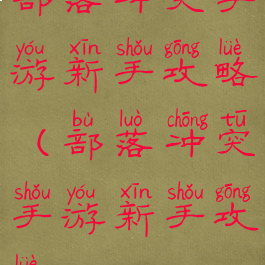 部落冲突手
yóu xīn shǒu gōng lüè
游新手攻略
bù luò chōng tū
(部落冲突
shǒu yóu xīn shǒu gōng
手游新手攻
lüè